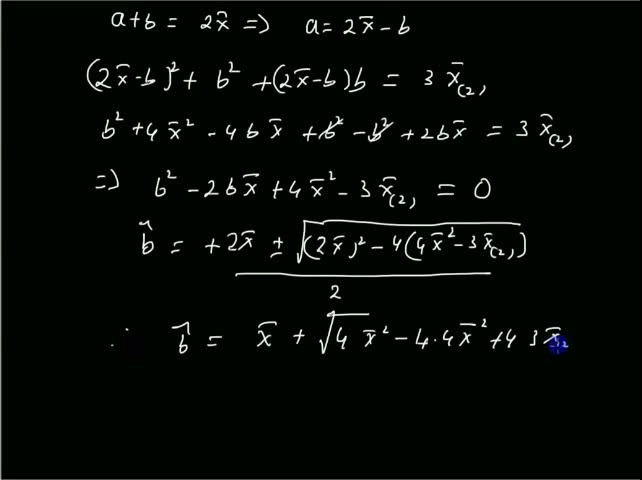 a+b = 2x̄ => a = 2x̄-b
(2x̄-b)² + b² + (2x̄-b)b = 3 x̄₍₂₎
b² + 4x̄² - 4bx̄ + b² - b² + 2bx̄ = 3 x̄₍₂₎
=> b² - 2bx̄ + 4x̄² - 3x̄₍₂₎ = 0
b̂ = +2x̄ ± √((2x̄)² - 4(4x̄² - 3x̄₍₂₎))
2
∴ b̂ = x̄ + √4 x̄² - 4.4x̄² + 4 3x̄₍₂